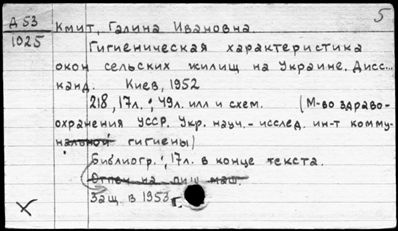 Д 53
1025
5
Кмит, Галина Ивановна.
Гигиеническая характеристика
окон сельских жилищ на Украине. Дисс...
канд. Киев, 1952
218, 17 л.; 49 л. илл и схем. (М-во здраво-
охранения УССР. Укр. науч.-исслед. ин-т комму-
нальной гигиены)
Библиогр.: 17 л. в конце текста.
Отпеч на пиш маш.
Защ. в 1953 г.